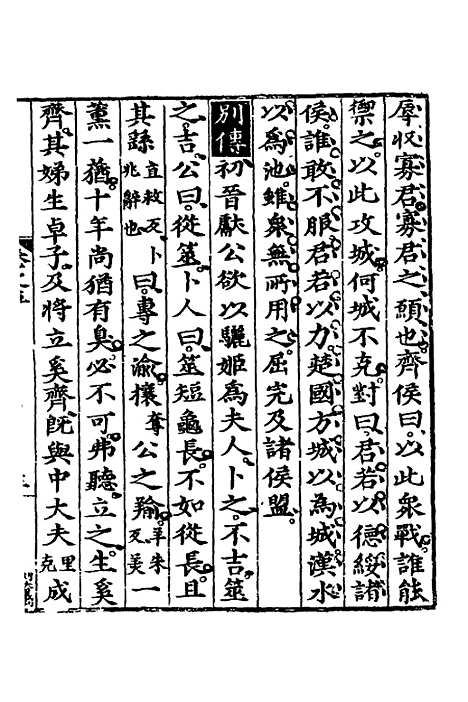 辱收寡君寡君之願也齊侯曰以此衆戰誰能
禦之以此攻城何城不克對曰君若以德綏諸
侯誰敢不服君若以力楚國方城以為城漢水
以為池雖衆無所用之屈完及諸侯盟
別傳初晉獻公欲以驪姬為夫人卜之不吉筮
之吉公曰從筮卜人曰筮短龜長不如從長且
其繇直救反兆辭也卜曰專之渝攘奪公之羭羊朱反美一
薰一蕕十年尚猶有臭必不可弗聽立之生奚
齊其娣生卓子及將立奚齊旣與中大夫里克成